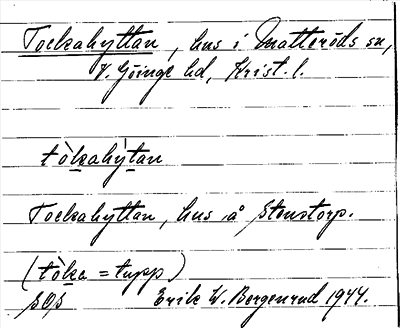 Tockahyttan, hus i Matteröds sn,
V. Göinge hd, Krist. l.
tòkahỳtan
Tockahyttan, hus å Stenstorp.
(tòka = tupp)
Erik W. Bergenrud 1944.